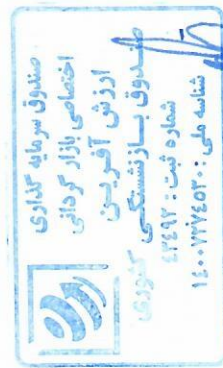 صندوق سرمایه گذاری
اختصاصی بازار گردانی
ارزش آفرین
صندوق بازنشستگی
کشوری
شماره ثبت: ۴۳۴۹۲
شناسه ملی: ۱۴۰۰۷۷۷۴۵۳۰